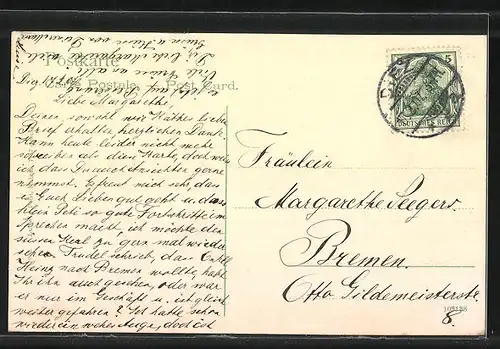 Postkarte
Carte Postale Post Card.
Liebe Margarethe,
Deinen sowohl wie Käthes lieben
Brief erhalten herzlichen Dank.
Kann heute leider nicht mehr
schreiben als diese Karte, doch weiss
ich, dass Du auch Ansichten gerne
nimmst. Es freut mich sehr, dass
es Euch Lieben gut geht u. dass
klein Peti so gute Fortschritte im
Sprechen macht, ich möchte den
süssen Kerl zu gern mal wieder
sehen. Trudel schrieb, dass Onkel
Heinz nach Bremen wollte, habt
Ihr ihn auch gesehen, oder war
er nur im Geschäft u. ist gleich
weiter gefahren? Gol hatte schon
wieder ein wehes Auge, doch ist
5
DEUTSCHES REICH
DIEZ
Fräulein
Margarethe Seegers.
Bremen.
Otto Gildemeisterstr.
8.